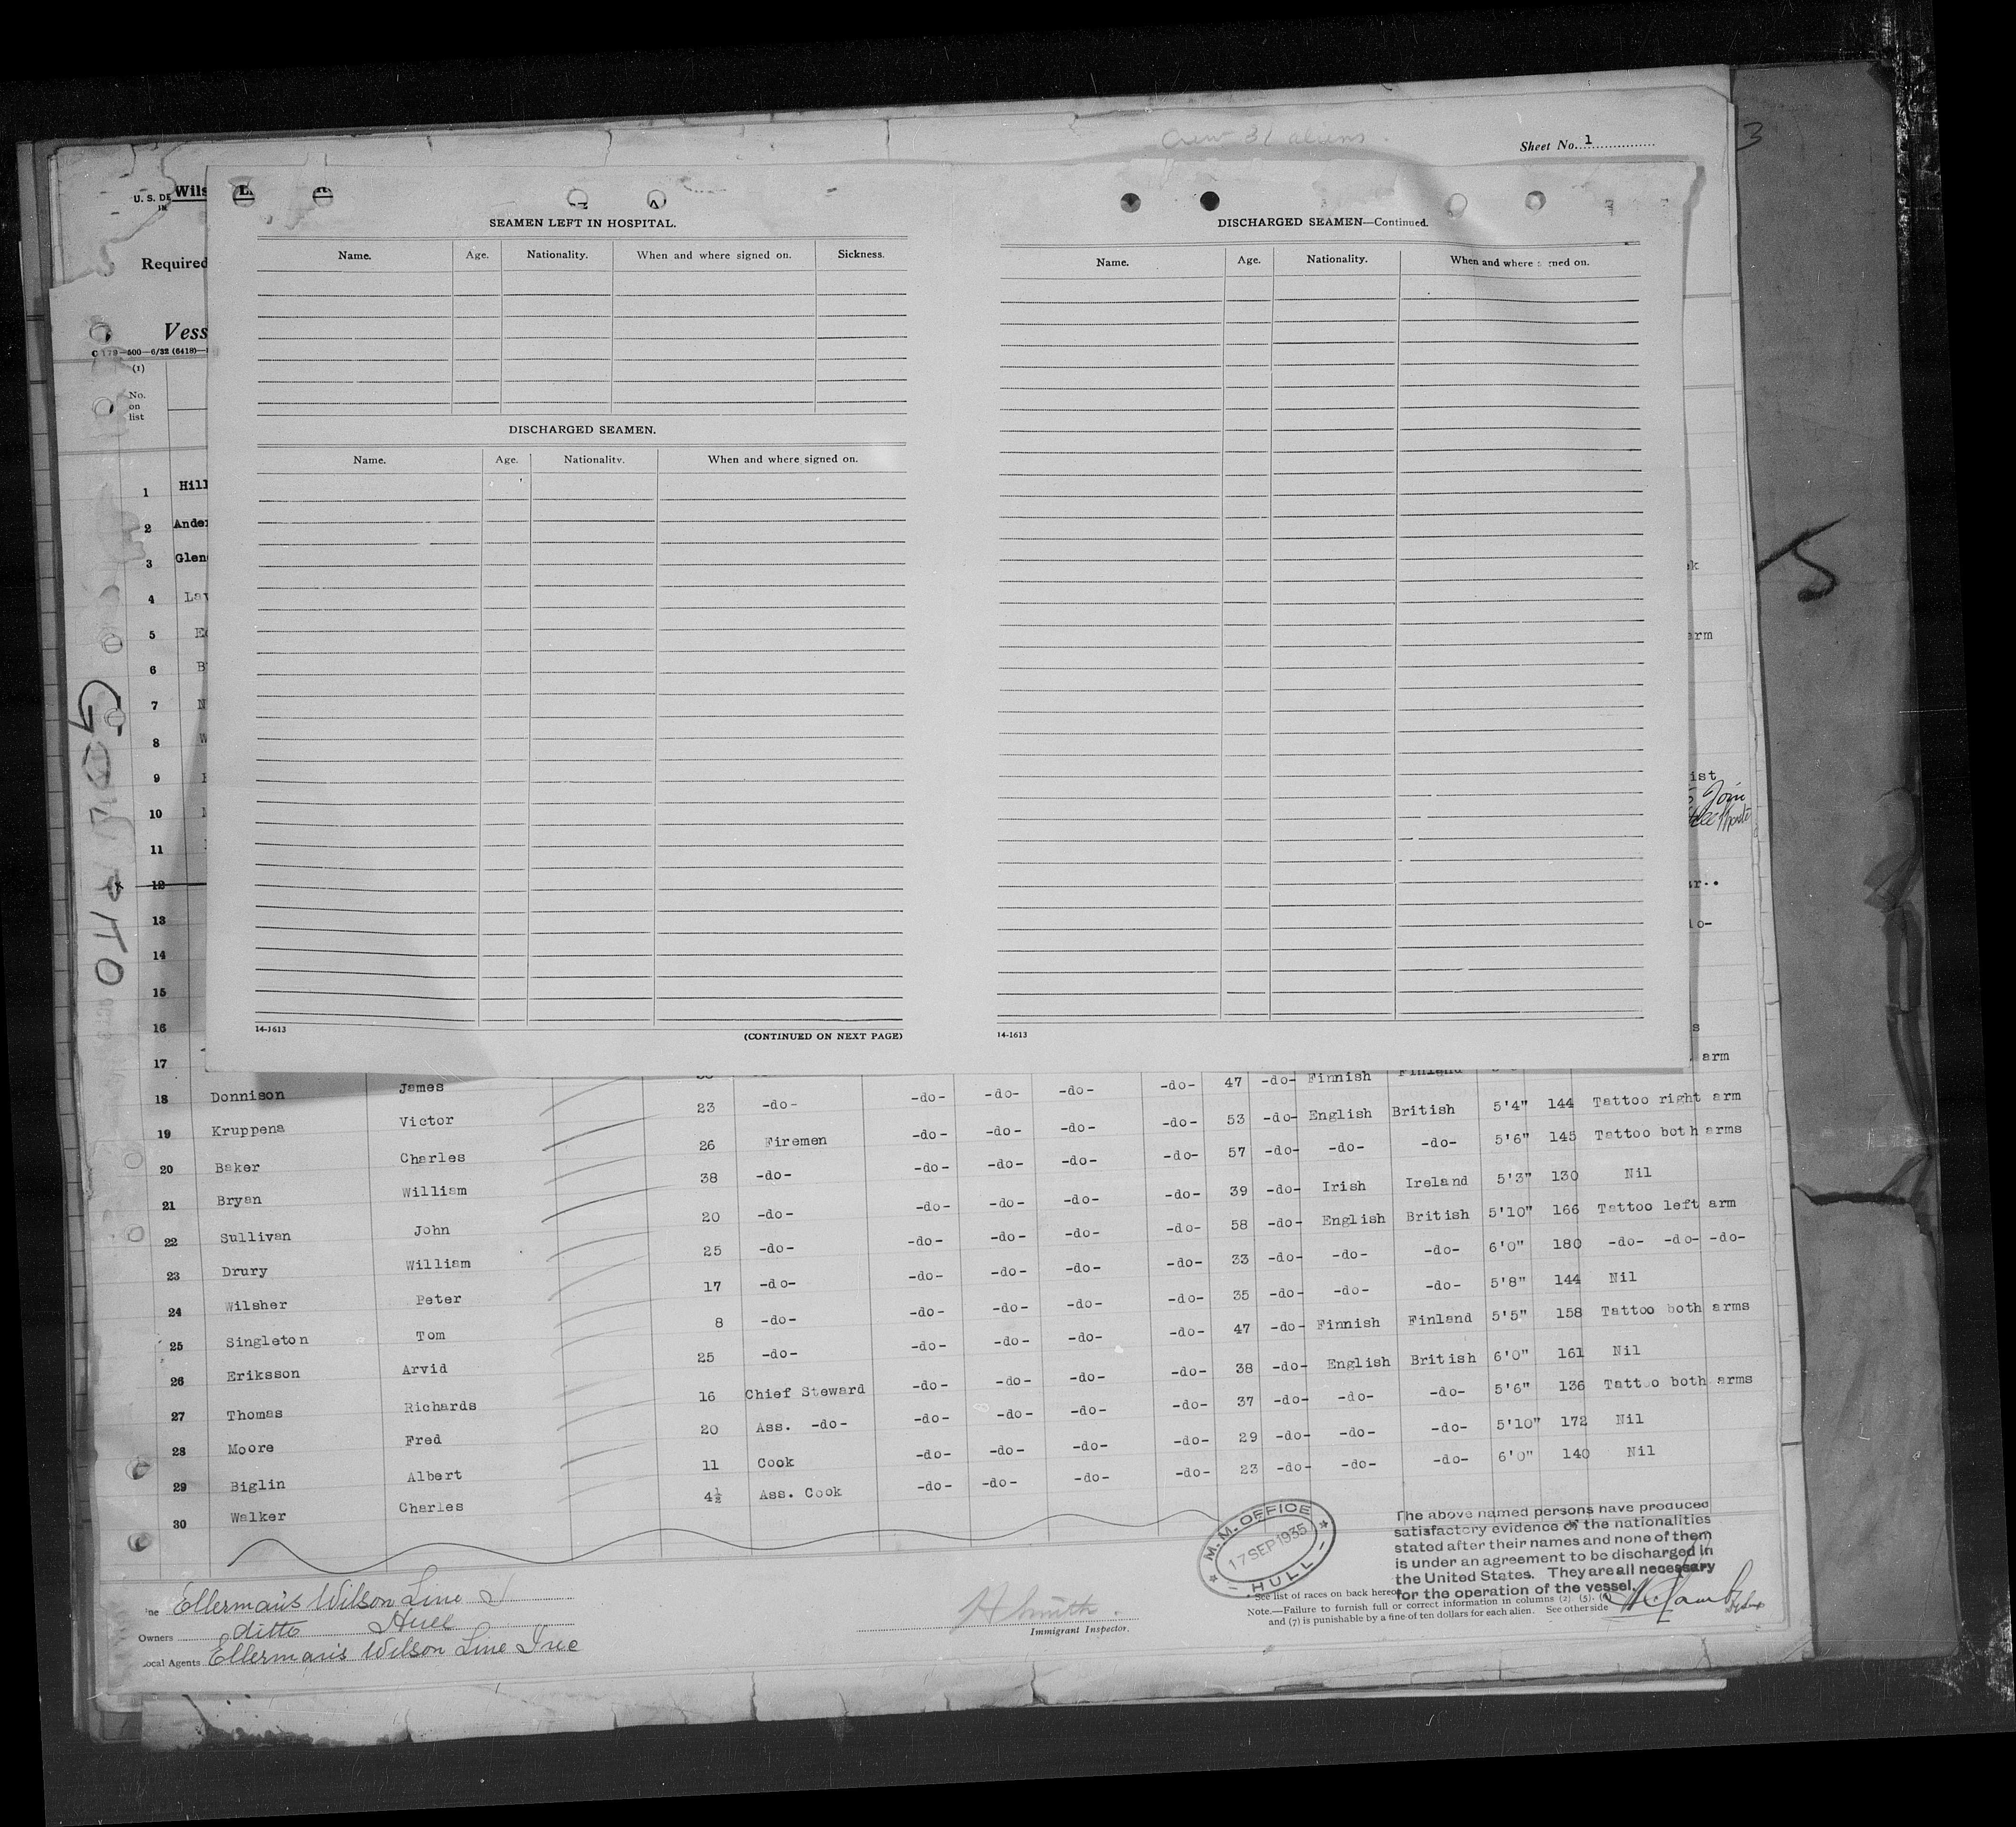 Crew 31 aliens.
Sheet No. 1
3
U. S. DE Wils
Required
Vess
(1)
No.
on
list
SEAMEN LEFT IN HOSPITAL.
Name. Age. Nationality. When and where signed on. Sickness.
DISCHARGED SEAMEN.
Name. Age. Nationality. When and where signed on.
14-1613
(CONTINUED ON NEXT PAGE)
DISCHARGED SEAMEN—Continued.
Name. Age. Nationality. When and where signed on.
14-1613
1 Hill
2 Ander
3 Glen
4 Law
5
6
7
8
9
10
11
12
13
14
15
16
17
arm
ist
Join
arm
18 Donnison James 47 -do- Finnish Finland
19 Kruppena Victor 23 -do- -do- -do- -do- -do- 53 -do- English British 5'4" 144 Tattoo right arm
20 Baker Charles 26 Firemen -do- -do- -do- -do- 57 -do- -do- -do- 5'6" 145 Tattoo both arms
21 Bryan William 38 -do- -do- -do- -do- -do- 39 -do- Irish Ireland 5'3" 130 Nil
22 Sullivan John 20 -do- -do- -do- -do- -do- 58 -do- English British 5'10" 166 Tattoo left arm
23 Drury William 25 -do- -do- -do- -do- -do- 33 -do- -do- -do- 6'0" 180 -do- -do- -do-
24 Wilsher Peter 17 -do- -do- -do- -do- -do- 35 -do- -do- -do- 5'8" 144 Nil
25 Singleton Tom 8 -do- -do- -do- -do- -do- 47 -do- Finnish Finland 5'5" 158 Tattoo both arms
26 Eriksson Arvid 25 -do- -do- -do- -do- -do- 38 -do- English British 6'0" 161 Nil
27 Thomas Richards 16 Chief Steward -do- -do- -do- -do- 37 -do- -do- -do- 5'6" 136 Tattoo both arms
28 Moore Fred 20 Ass. -do- -do- -do- -do- -do- 29 -do- -do- -do- 5'10" 172 Nil
29 Biglin Albert 11 Cook -do- -do- -do- -do- 23 -do- -do- -do- 6'0" 140 Nil
30 Walker Charles 4½ Ass. Cook -do- -do- -do-
M.M. OFFICE
17 SEP 1935
HULL
The above named persons have produced
satisfactory evidence of the nationalities
stated after their names and none of them
is under an agreement to be discharged in
the United States. They are all necessary
for the operation of the vessel.
See list of races on back hereof
Note.—Failure to furnish full or correct information in columns (2), (5), (6)
and (7) is punishable by a fine of ten dollars for each alien. See other side
Ellerman's Wilson Line
Owners ditto Hull
Local Agents Ellerman's Wilson Line Inc
H Smith.
Immigrant Inspector.